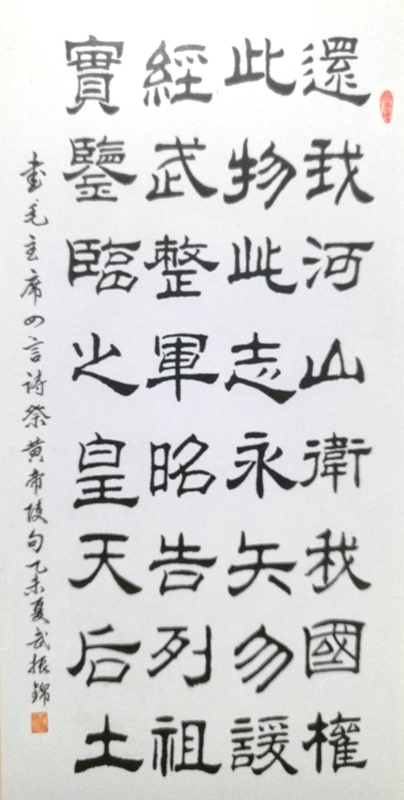 還我河山衛我國權
此物此志永矢勿諼
經武整軍昭告列祖
實鑒臨之皇天后土
書毛主席四言诗祭黄帝陵句乙未夏武振錦